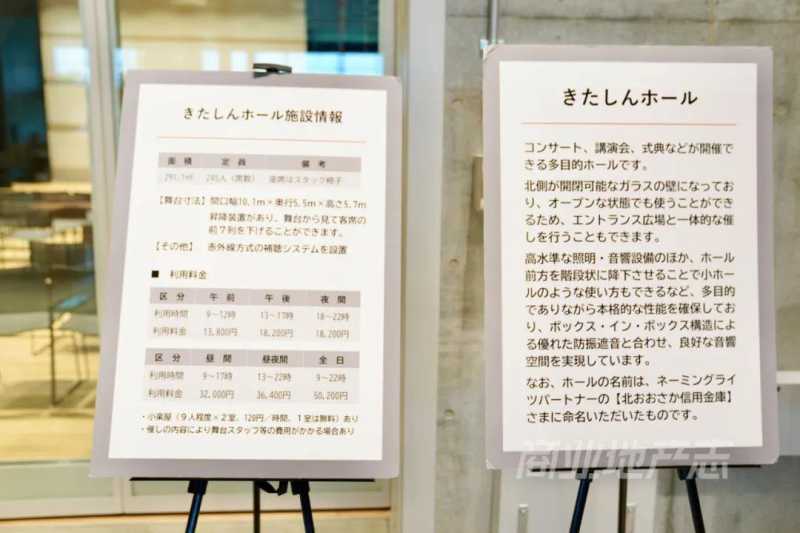 きたしんホール施設情報
面積 定員 備考
291.1㎡ 245人（席数） 座席はスタック椅子
【舞台寸法】間口幅10.1m×奥行5.5m×高さ5.7m
昇降装置があり、舞台から見て客席の
前7列を下げることができます。
【その他】 赤外線方式の補聴システムを設置
■ 利用料金
区分 午前 午後 夜間
利用時間 9〜12時 13〜17時 18〜22時
利用料金 13,800円 18,200円 18,200円
区分 昼間 昼夜間 全日
利用時間 9〜17時 13〜22時 9〜22時
利用料金 32,000円 36,400円 50,200円
・小楽屋（9人程度×2室、120円／時間、1室は無料）あり
・催しの内容により舞台スタッフ等の費用がかかる場合あり
きたしんホール
コンサート、講演会、式典などが開催で
きる多目的ホールです。
北側が開閉可能なガラスの壁になってお
り、オープンな状態でも使うことができ
るため、エントランス広場と一体的な催
しを行うこともできます。
高水準な照明・音響設備のほか、ホール
前方を階段状に降下させることで小ホー
ルのような使い方もできるなど、多目的
でありながら本格的な性能を確保してお
り、ボックス・イン・ボックス構造によ
る優れた防振遮音と合わせ、良好な音響
空間を実現しています。
なお、ホールの名前は、ネーミングライ
ツパートナーの【北おおさか信用金庫】
さまに命名いただいたものです。
商业地产志